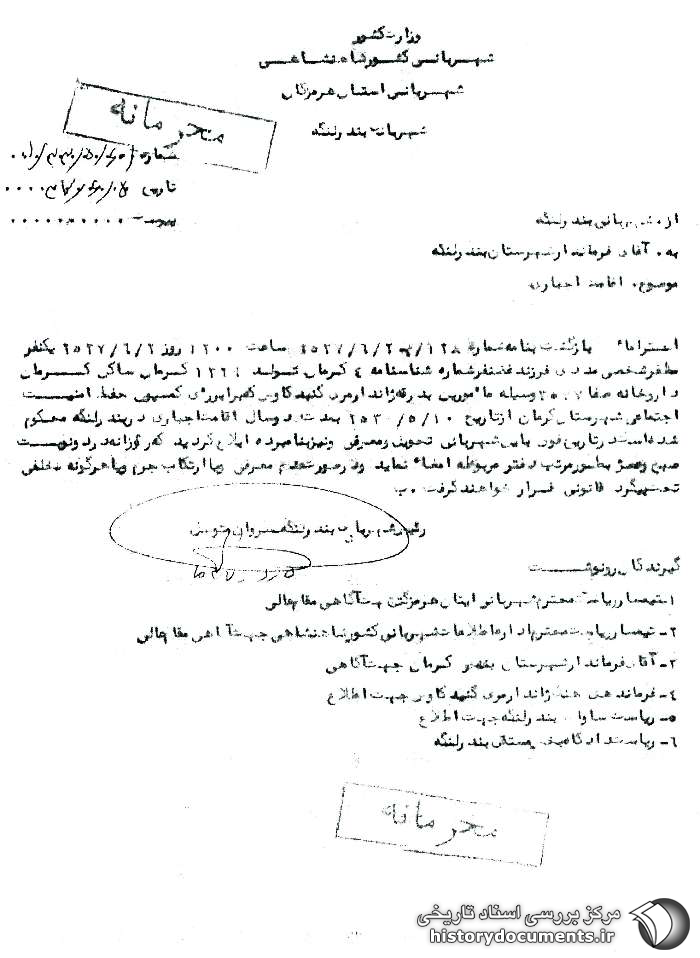 وزارت کشور
شهربانی کشور شاهنشاهی
شهربانی استان هرمزگان
شهربانی بندرلنگه
محرمانه
شماره
تاریخ
پیوست
از، شهربانی بندرلنگه
به، آقای فرماندار شهرستان بندرلنگه
موضوع، اقامت اجباری
احتراما" بازگشت بنامه شماره ساعت ۱۲۰۰ روز ۲۵۳۷/۶/۲ یکنفر
مظفر شخصی مددی فرزند غضنفر شماره شناسنامه ۴ کرمان تولد ۱۳۲۱ کرمان ساکن کرمان
داروخانه صفا وسیله مامورین بدرقه ژاندارمری گنبدکاوس که برابر رای کمسیون حفظ امنیت
اجتماعی شهرستان کرمان از تاریخ ۲۵۳۰/۵/۱۰ بمدت دو سال اقامت اجباری در بندرلنگه محکوم
شده است در تاریخ فوق باین شهربانی تحویل و معرفی و نیز بنامبرده ابلاغ گردید که روزانه در دو نوبت
صبح و عصر بطور مرتب دفتر مربوطه امضاء نماید و در صورت عدم معرفی و یا ارتکاب جرم و یا هرگونه تخلفی
تحت پیگرد قانونی قرار خواهند گرفت
رئیس شهربانی بندرلنگه سروان
گیرندگان رونوشت
۱- تیمسار ریاست محترم شهربانی استان هرمزگان جهت آگاهی مقام عالی
۲- تیمسار ریاست محترم اداره اطلاعات شهربانی کشور شاهنشاهی جهت آگاهی مقام عالی
۳- آقای فرماندار شهرستان کرمان جهت آگاهی
۴- فرمانده هنگ ژاندارمری گنبدکاوس جهت اطلاع
۵- ریاست ساواک بندرلنگه جهت اطلاع
۶- ریاست دادگاه بندرلنگه
محرمانه
مرکز بررسی اسناد تاریخی
historydocuments.ir